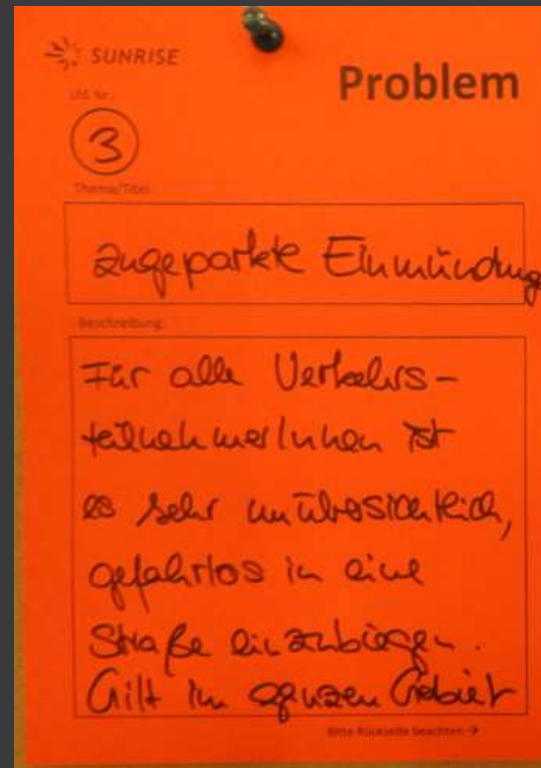 SUNRISE
Problem
Lfd. Nr.:
3
Thema/Titel:
zugeparkte Einmündung
Beschreibung:
Für alle Verkehrs-
teilnehmerInnen ist
es sehr unübersichtlich,
gefahrlos in eine
Straße einzubiegen.
Gilt im ganzen Gebiet
Bitte Rückseite beachten →